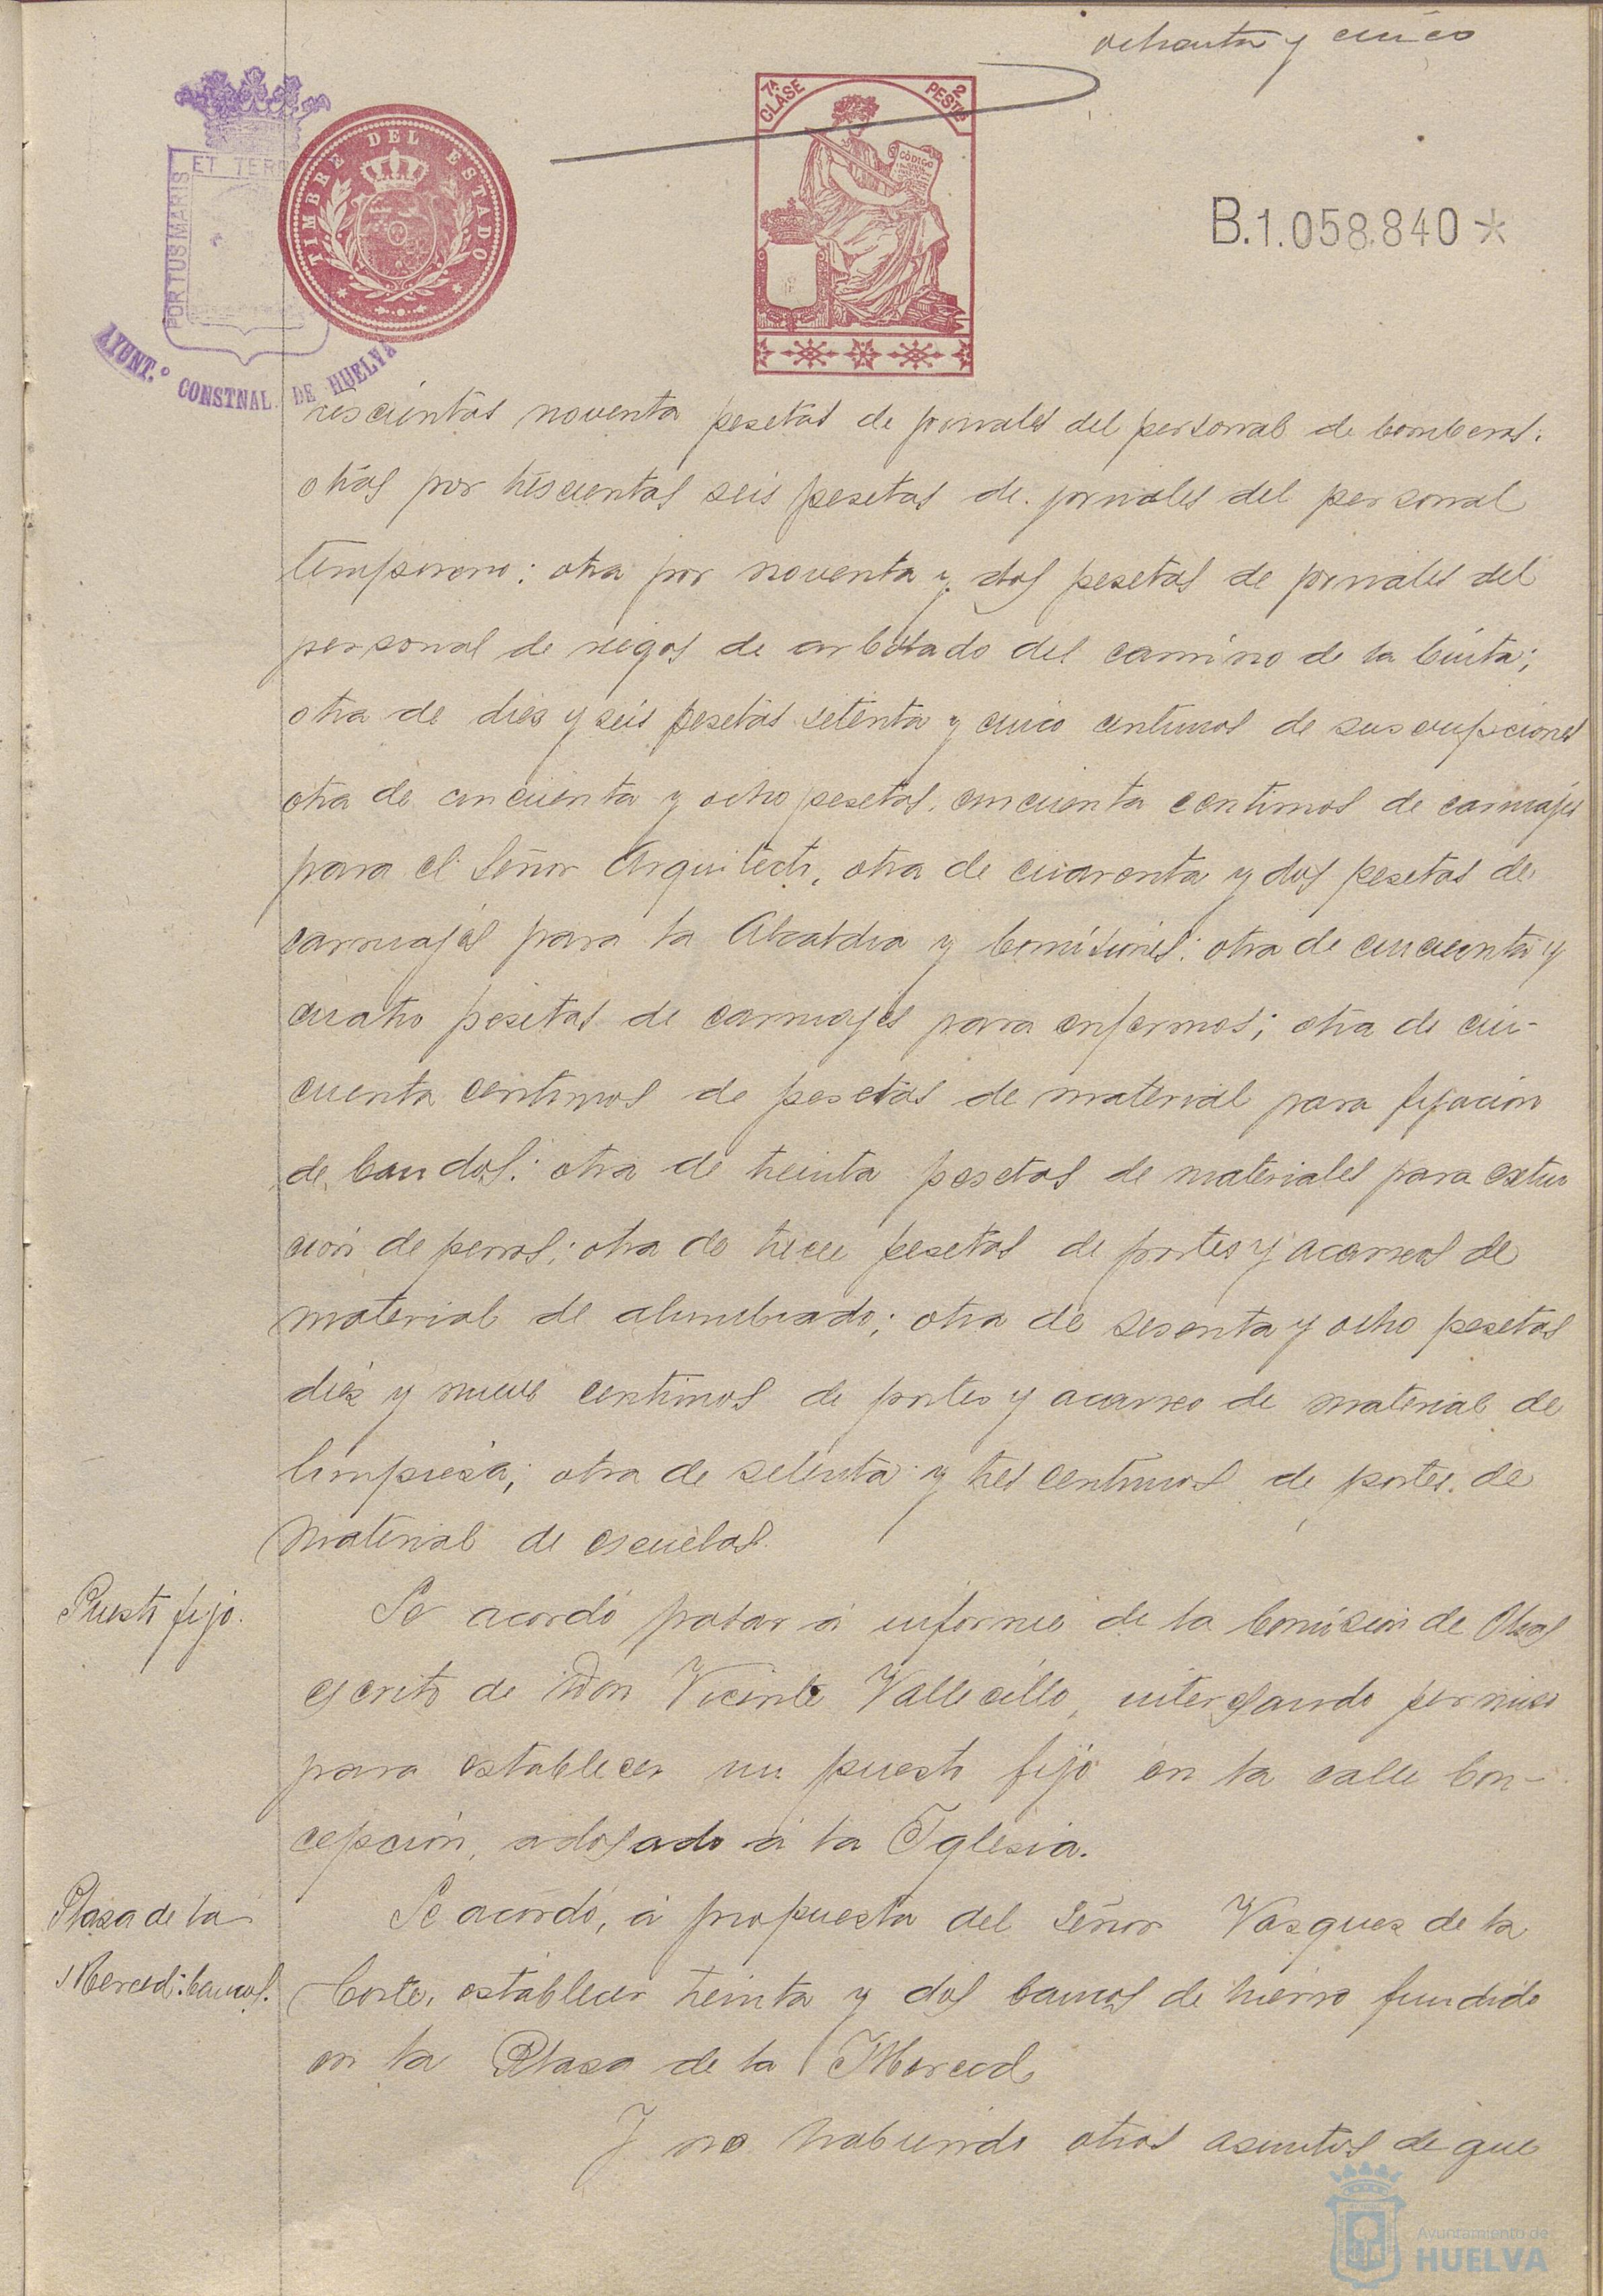 ochenta y cinco
7ª CLASE
2 PESTAS
CÓDIGO
TIMBRE DEL ESTADO
PORTUS MARIS ET TER
AYUNT.º CONSTNAL. DE HUELVA
B.1.058.840*
trescientas noventa pesetas de jornales del personal de bomberos:
otras por trescientas seis pesetas de jornales del personal
temporero; otra por noventa y dos pesetas de jornales del
personal de riegos de arbolado del camino de la Cinta;
otra de dies y seis pesetas setenta y cinco centimos de suscripciones
otra de cincuenta y ocho pesetas, cincuenta centimos de carruajes
para el Señor Arquitecto, otra de cuarenta y dos pesetas de
carruajes para la Alcaldia y Comisiones: otra de cincuenta y
cuatro pesetas de carruajes para enfermos; otra de cin-
cuenta centimos de pesetas de material para fijacion
de bandos: otra de treinta pesetas de materiales para extin
cion de perros; otra de trece pesetas de portes y acarreos de
material de alumbrado; otra de sesenta y ocho pesetas
diez y nueve centimos de portes y acarreo de material de
limpieza; otra de setenta y tres centimos de portes de
material de escuelas.
Puesto fijo.
Se acordó pasar á informe de la Comision de Obras
escrito de Don Vicente Vallecillo, interesando permiso
para establecer un puesto fijo en la calle Con-
cepcion, adosado á la Iglesia.
Plaza de la
Merced: bancos.
Se acordó, á propuesta del Señor Vasquez de la
Corte, establecer treinta y dos bancos de hierro fundido
en la Plaza de la Merced
Y no habiendo otros asuntos de que
Ayuntamiento de
HUELVA